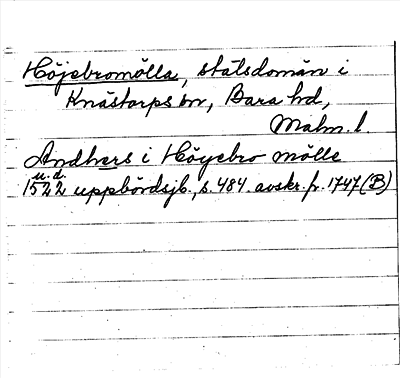 Höjebromölla, statsdomän i
Knästorps sn, Bara hd,
Malm. l.
Andhers i Höyebro mölle
u.d.
1522 uppbördsjb., s. 484 avskr. fr. 1747 (B)